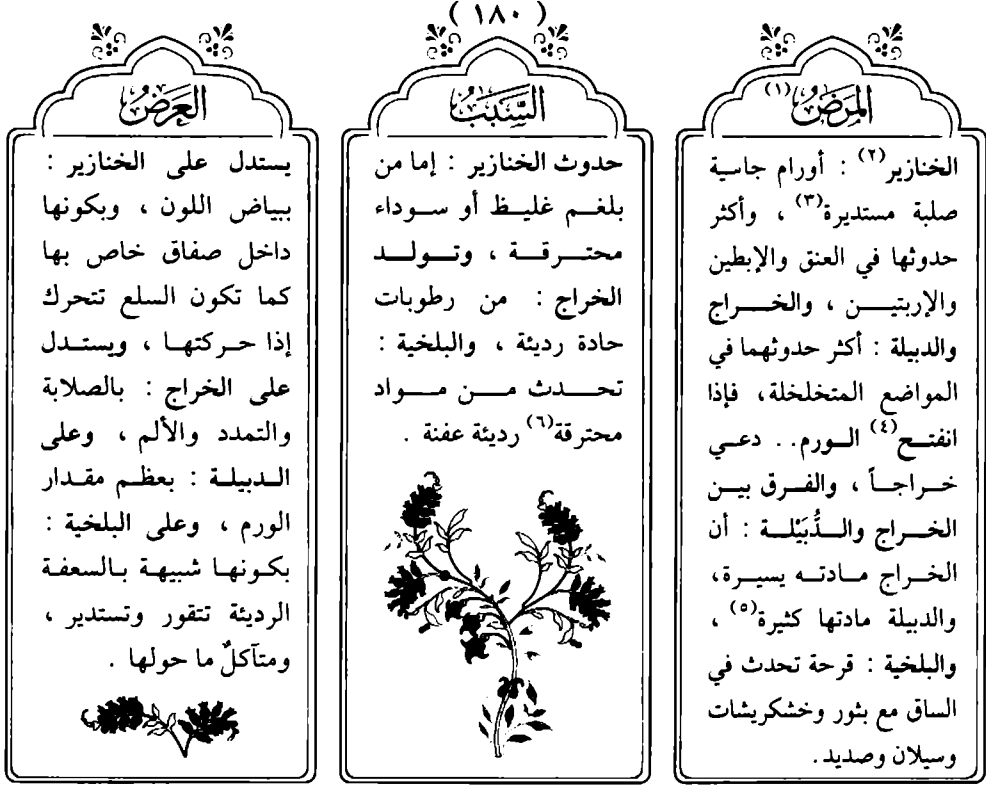 ( ١٨٠ )
المَرَضُ(١)
الخنازير(٢) : أورام جاسية
صلبة مستديرة(٣) ، وأكثر
حدوثها في العنق والإبطين
والإربتيـــن ، والخـــراج
والدبيلة : أكثر حدوثهما في
المواضع المتخلخلة، فإذا
انفتــح(٤) الــورم.. دعــي
خــراجــاً ، والفــرق بيــن
الخـــراج والــدُّبَيْلــة : أن
الخـراج مـادتــه يسيــرة،
والدبيلة مادتها كثيرة(٥) ،
والبلخية : قرحة تحدث في
الساق مع بثور وخشكريشات
وسيلان وصديد.
السَّبَبُ
حدوث الخنازير : إما من
بلغــم غليــظ أو ســوداء
محتــرقــة ، وتــولــد
الخراج : من رطوبات
حادة رديئة ، والبلخية :
تحــدث مــن مــواد
محترقة(٦) رديئة عفنة .
العَرَضُ
يستدل على الخنازير :
ببياض اللون ، وبكونها
داخل صفاق خاص بها
كما تكون السلع تتحرك
إذا حـركتهـا ، ويستـدل
على الخراج : بالصلابة
والتمدد والألم ، وعلى
الـدبيلـة : بعظـم مقـدار
الورم ، وعلى البلخية :
بكـونهـا شبيهـة بـالسعفـة
الرديئة تتقور وتستدير ،
ومتآكلٌ ما حولها .